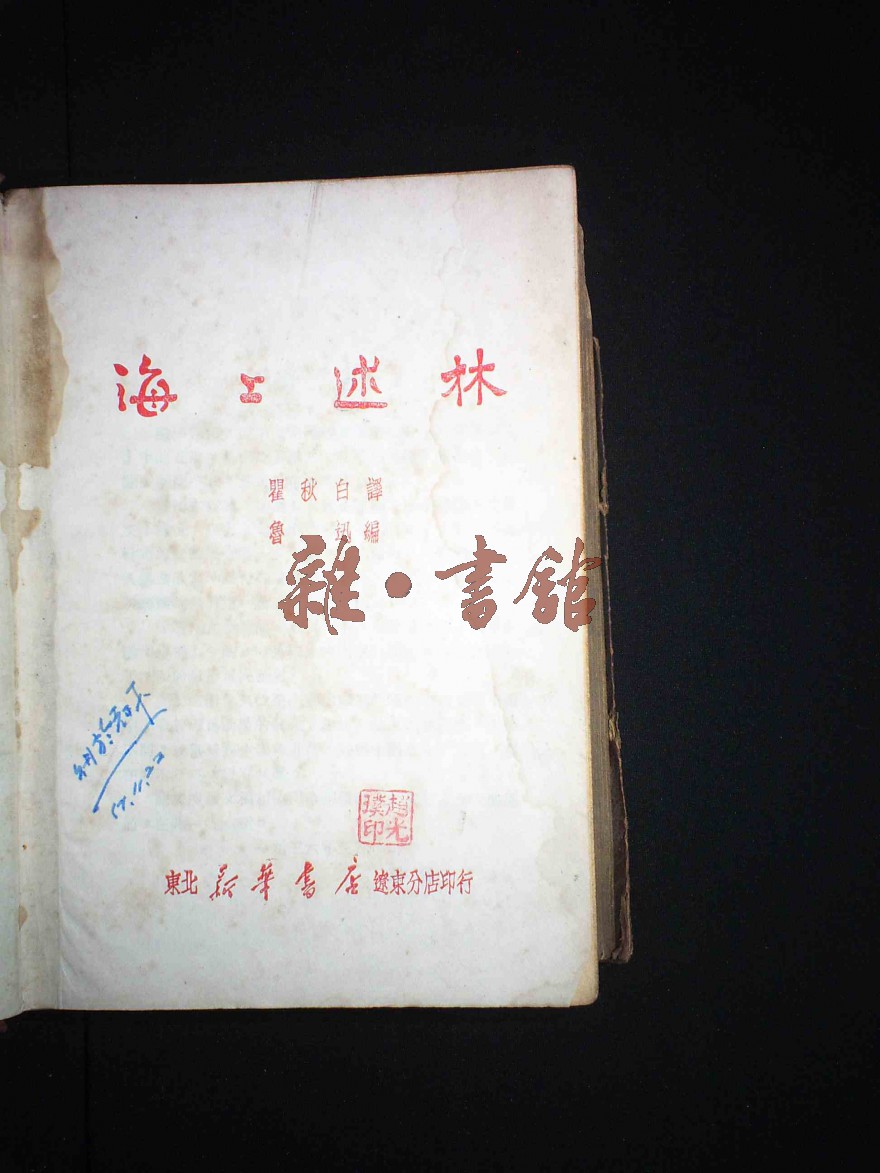 海上述林
瞿秋白譯
魯迅編
雜·書館
趙光
璞印
東北新華書店遼東分店印行